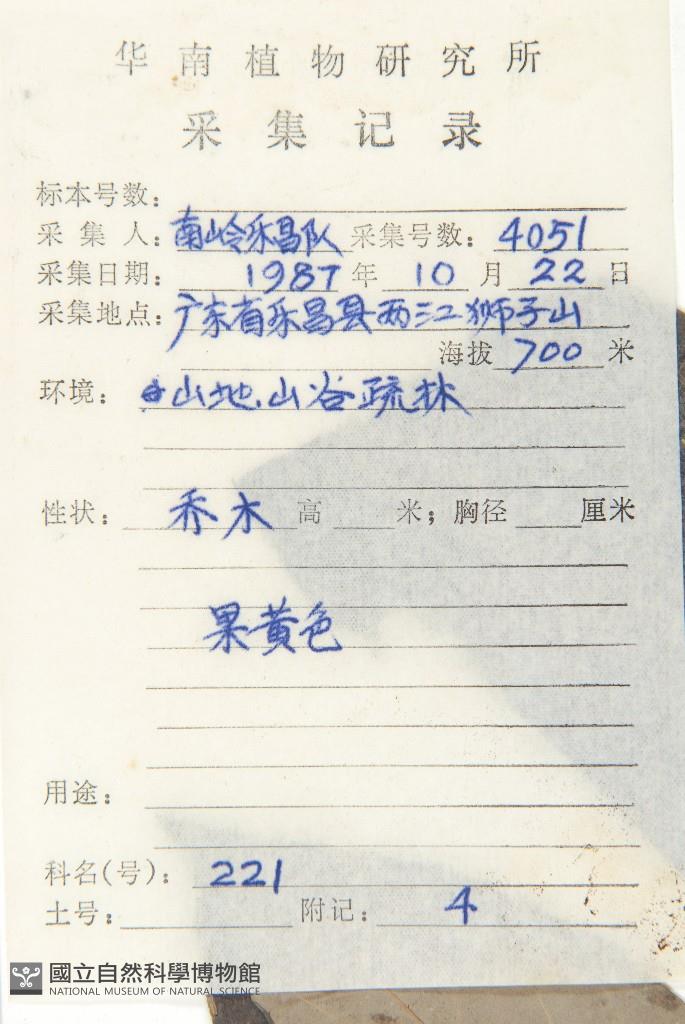 华南植物研究所
采集记录
标本号数：
采集人：南岭乐昌队 采集号数：4051
采集日期：1987年10月22日
采集地点：广东省乐昌县两江狮子山
海拔700米
环境：山地、山谷疏林
性状：乔木 高 米；胸径 厘米
果黄色
用途：
科名(号)：221
土号： 附记：4
國立自然科學博物館
NATIONAL MUSEUM OF NATURAL SCIENCE